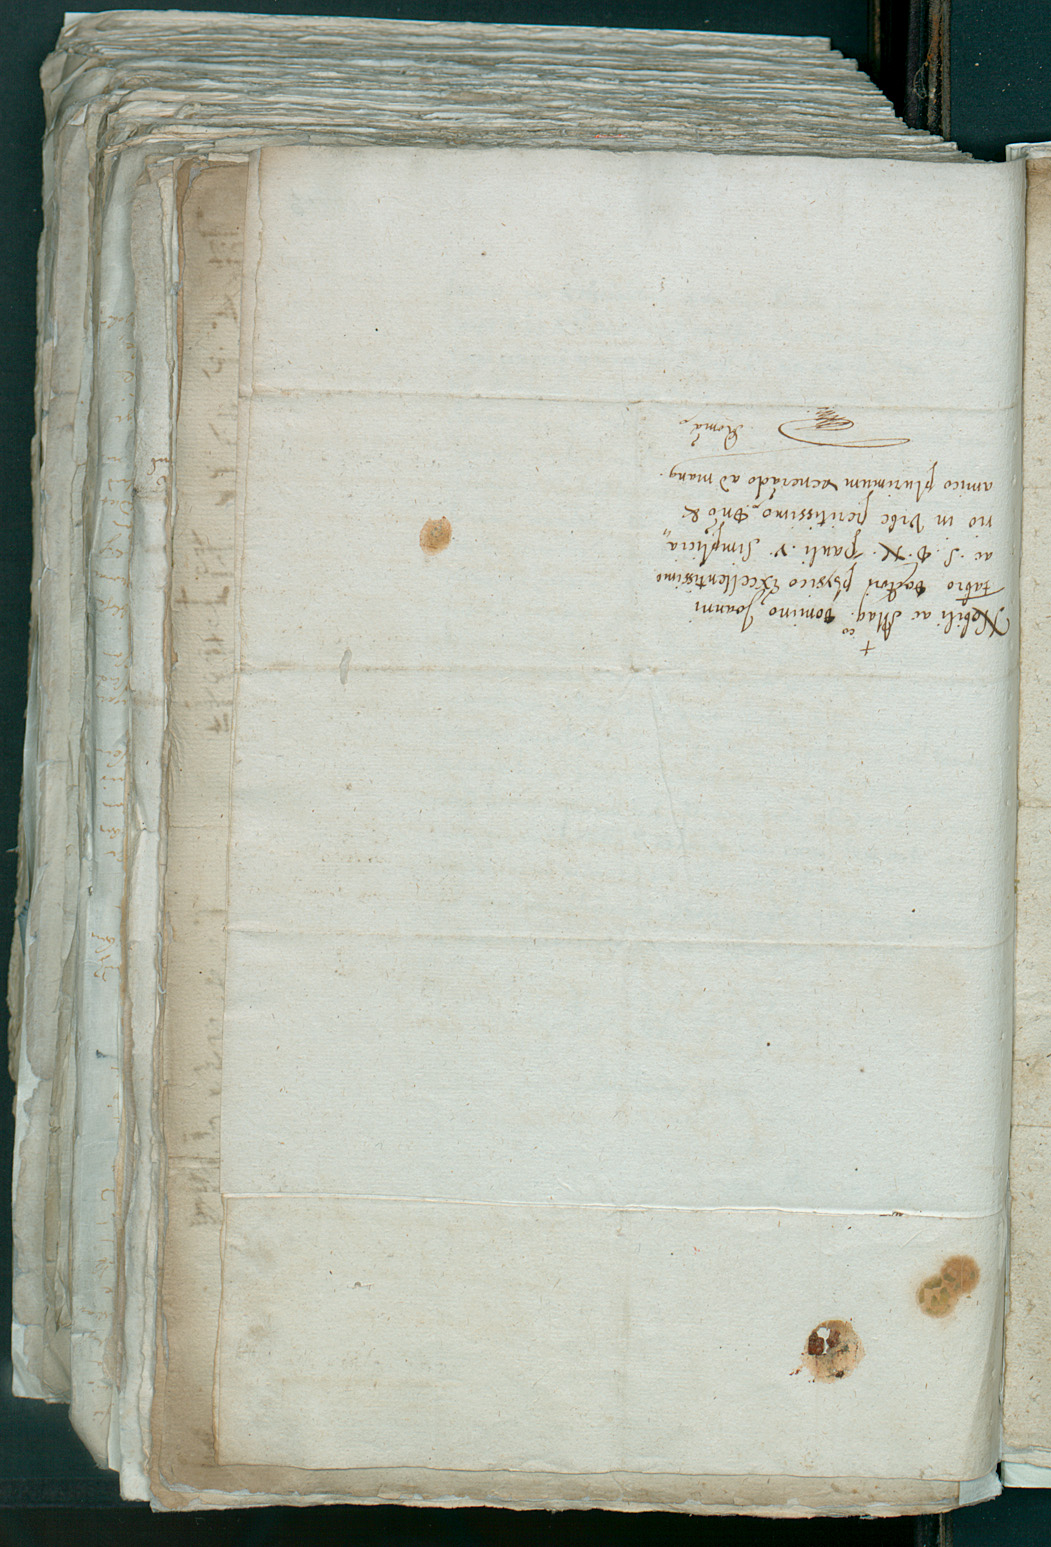 +
Nobili ac Mag.co Domino Joanni
Fabro Doctori physico Excellentissimo
ac S. D. N. Pauli . V . Simplicia„
rio in Urbe peritissimo, Dno &
amico plurimum venerãdo ad man9.
Romã,